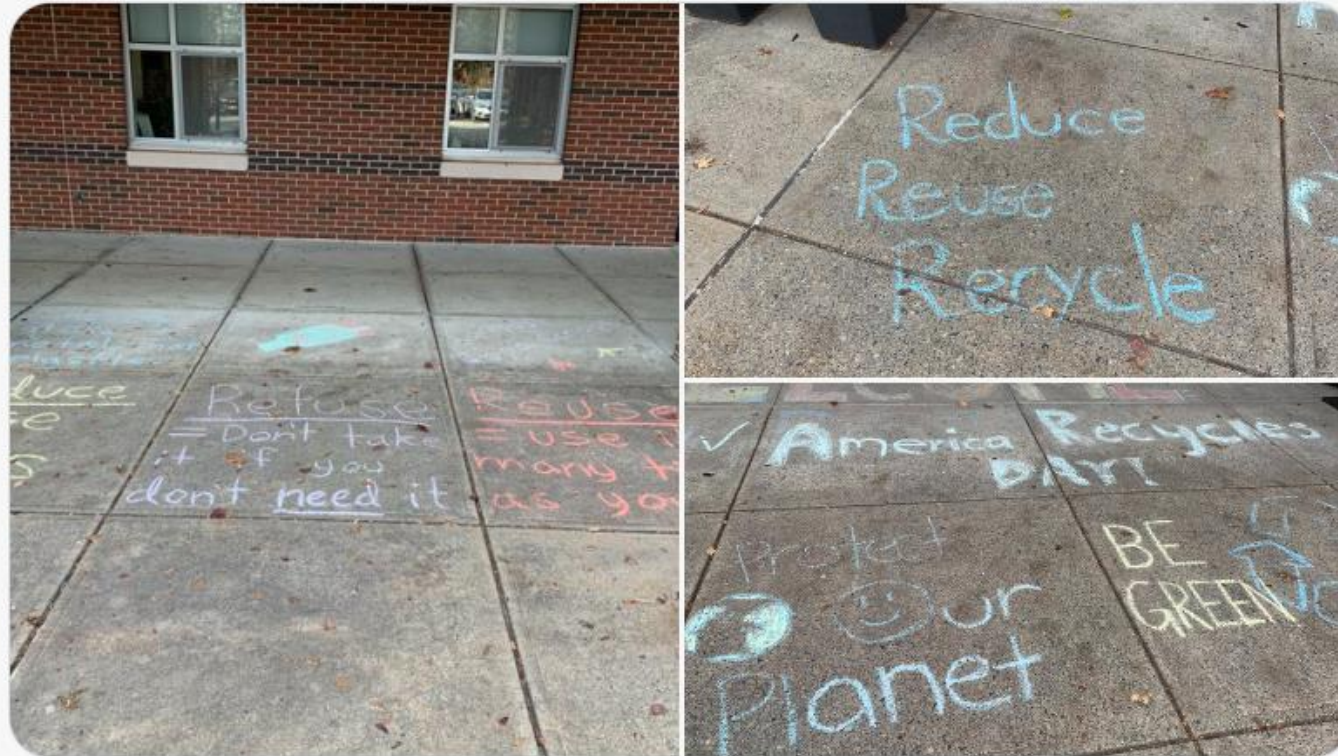 duce
Refuse
= Don't take
it if you
don't need it
Reuse
= use i
many t
as you
Reduce
Reuse
Recycle
America Recycles
DAY!
Protect
Our
Planet
BE
GREEN